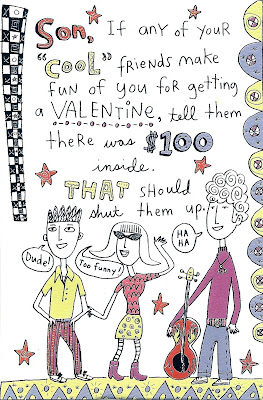 Son, If any of your
"COOL" friends make
fun of you for getting
a VALENTINE, tell them
there was $100
inside.
THAT should
shut them up.
Dude!
Too funny!
HA
HA